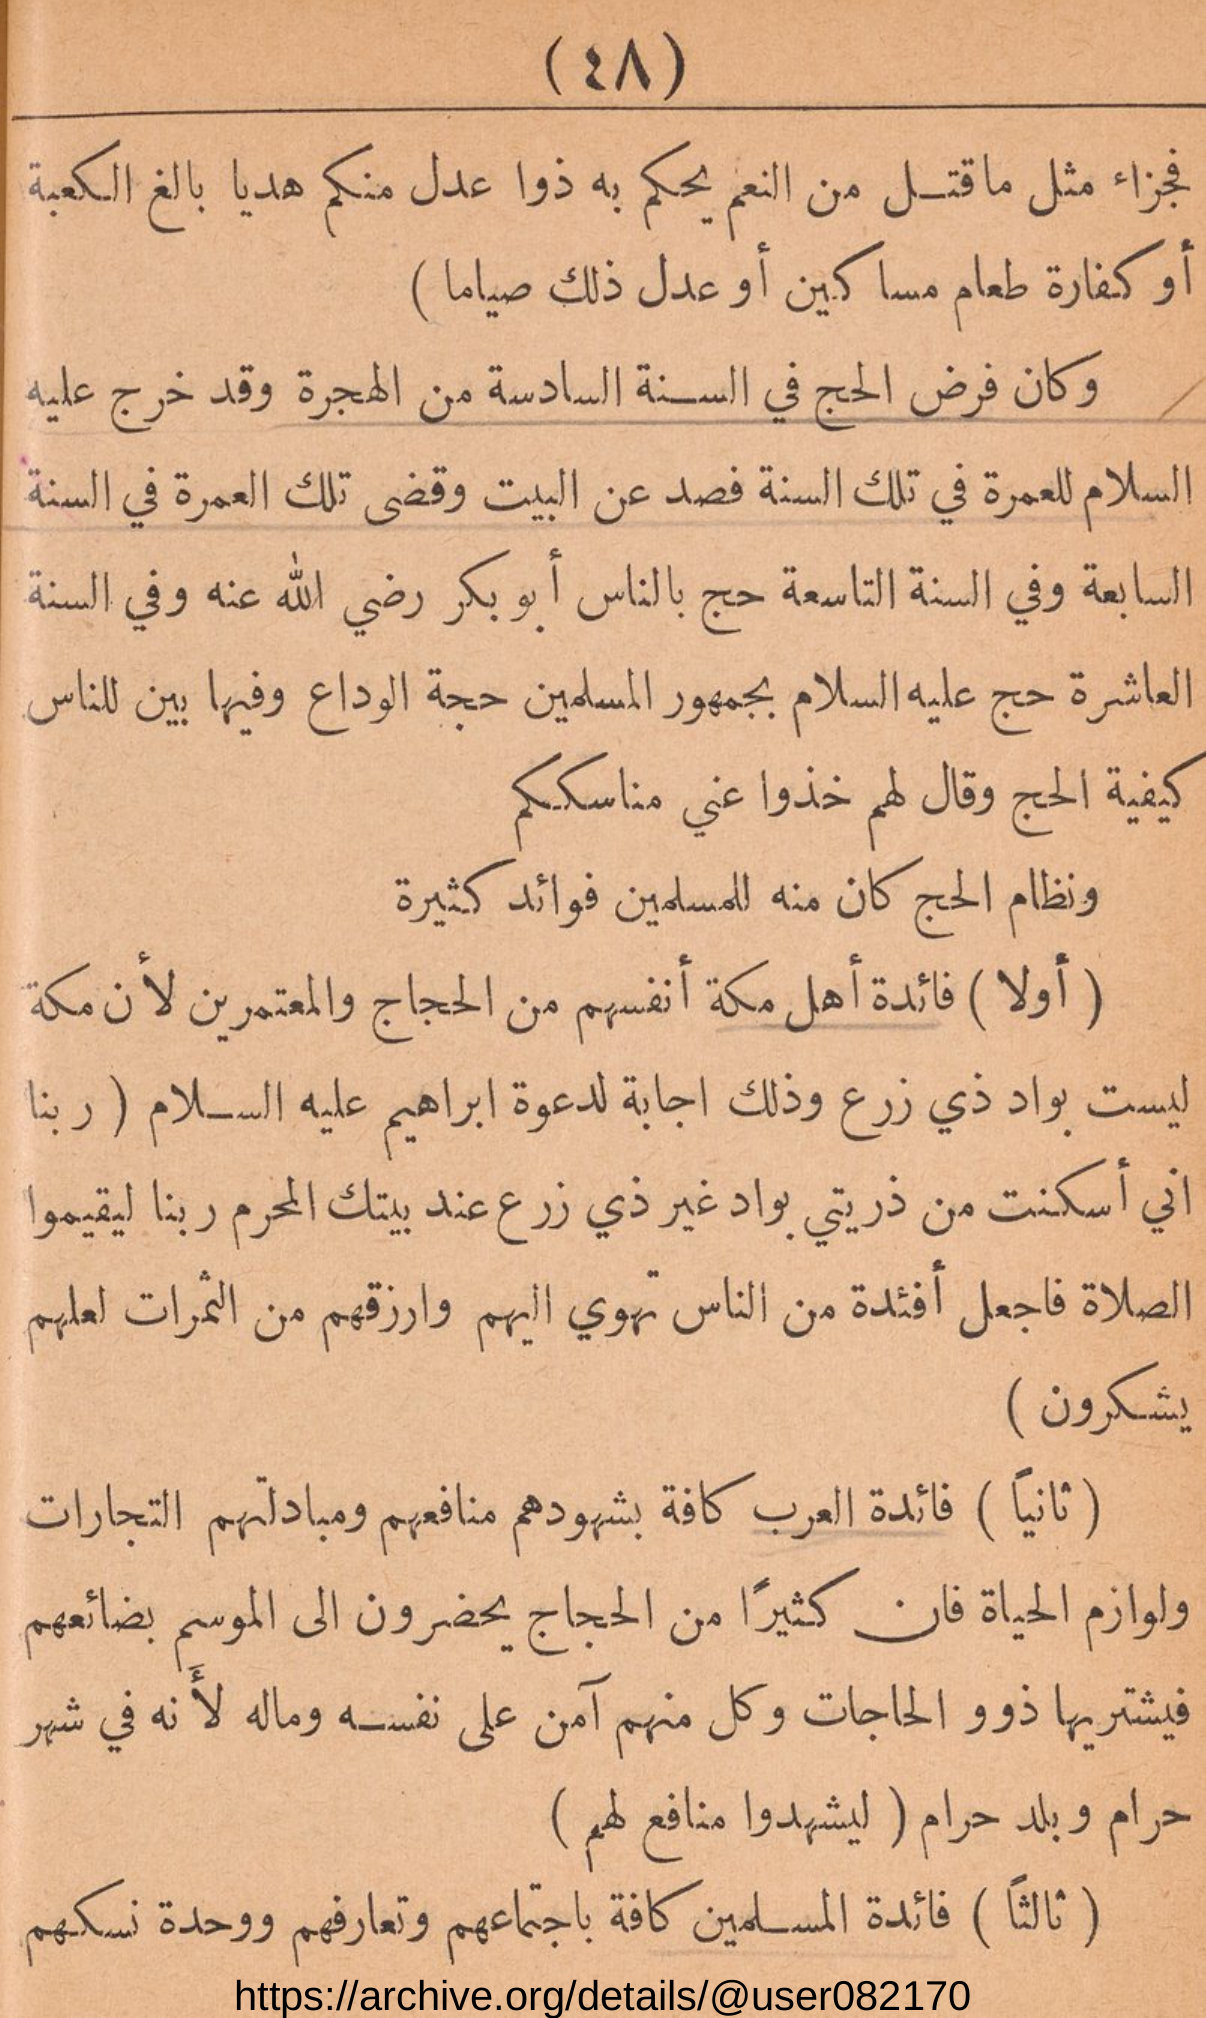 (٤٨)
فجزاء مثل ماقتل من النعم يحكم به ذوا عدل منكم هديا بالغ الكعبة
أو كفارة طعام مساكين أو عدل ذلك صياما )
وكان فرض الحج في السنة السادسة من الهجرة وقد خرج عليه
السلام للعمرة في تلك السنة فصد عن البيت وقضى تلك العمرة في السنة
السابعة وفي السنة التاسعة حج بالناس أبو بكر رضي الله عنه وفي السنة
العاشرة حج عليه السلام بجمهور المسلمين حجة الوداع وفيها بين للناس
كيفية الحج وقال لهم خذوا عني مناسككم
ونظام الحج كان منه للمسلمين فوائد كثيرة
( أولا ) فائدة أهل مكة أنفسهم من الحجاج والمعتمرين لأن مكة
ليست بواد ذي زرع وذلك اجابة لدعوة ابراهيم عليه السلام ( ربنا
اني أسكنت من ذريتي بواد غير ذي زرع عند بيتك المحرم ربنا ليقيموا
الصلاة فاجعل أفئدة من الناس تهوي اليهم وارزقهم من الثمرات لعلهم
يشكرون )
( ثانياً ) فائدة العرب كافة بشهودهم منافعهم ومبادلتهم التجارات
ولوازم الحياة فان كثيرًا من الحجاج يحضرون الى الموسم بضائعهم
فيشتريها ذوو الحاجات وكل منهم آمن على نفسه وماله لأَنه في شهر
حرام وبلد حرام ( ليشهدوا منافع لهم )
( ثالثاً ) فائدة المسلمين كافة باجتماعهم وتعارفهم ووحدة نسكهم
https://archive.org/details/@user082170